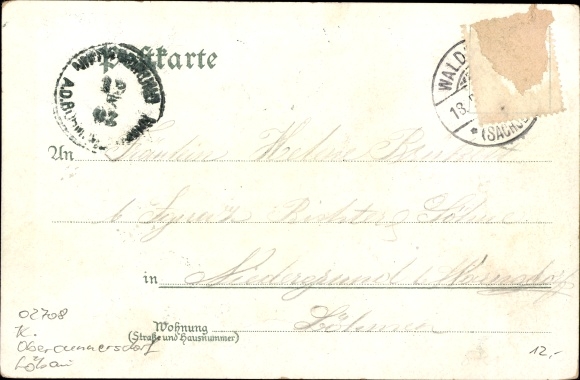 Postkarte
WALD
18.
* (SACHSE
An Fräulein Helene
b Ignatz Richter & Söhne
in Niedergrund b Warnsdorf
Wohnung
(Straße und Hausnummer)
Böhmen
02708
K.
Obercunnersdorf
Löbau
12,-